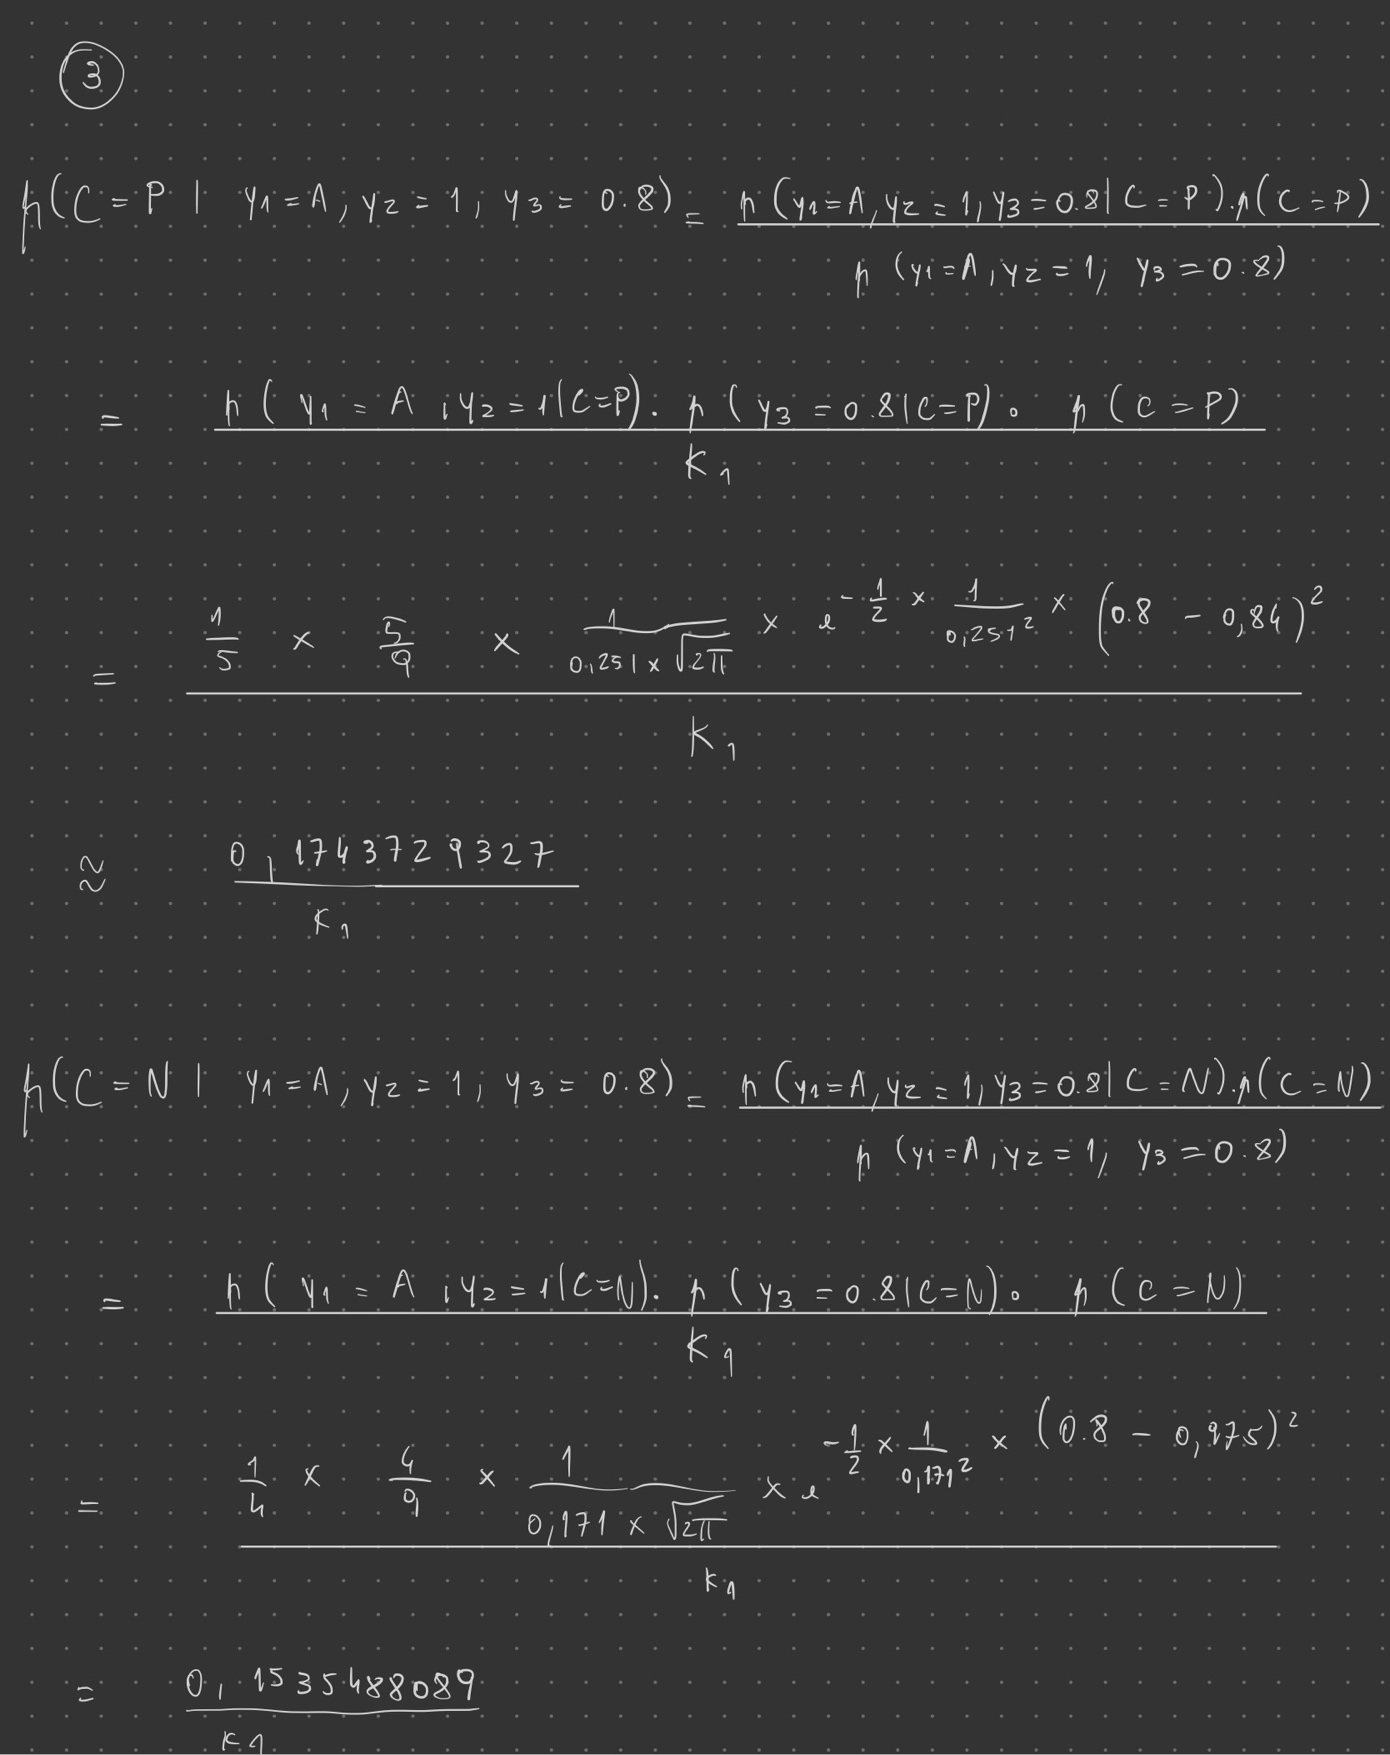 3
p(C=P | y1=A, y2=1, y3=0.8) = p(y1=A, y2=1, y3=0.8 | C=P).p(C=P)
p(y1=A, y2=1, y3=0.8)
= p(y1=A, y2=1|C=P). p(y3=0.8|C=P). p(C=P)
K1
= 1/5 x 5/9 x 1/(0,251 x √2π) x e^(-1/2 x 1/0,251² x (0.8 - 0,84)²)
K1
≈ 0,1743729327
K1
p(C=N | y1=A, y2=1, y3=0.8) = p(y1=A, y2=1, y3=0.8 | C=N).p(C=N)
p(y1=A, y2=1, y3=0.8)
= p(y1=A, y2=1|C=N). p(y3=0.8|C=N). p(C=N)
K1
= 1/4 x 4/9 x 1/(0,171 x √2π) x e^(-1/2 x 1/0,171² x (0.8 - 0,975)²)
K1
= 0,1535488089
K1